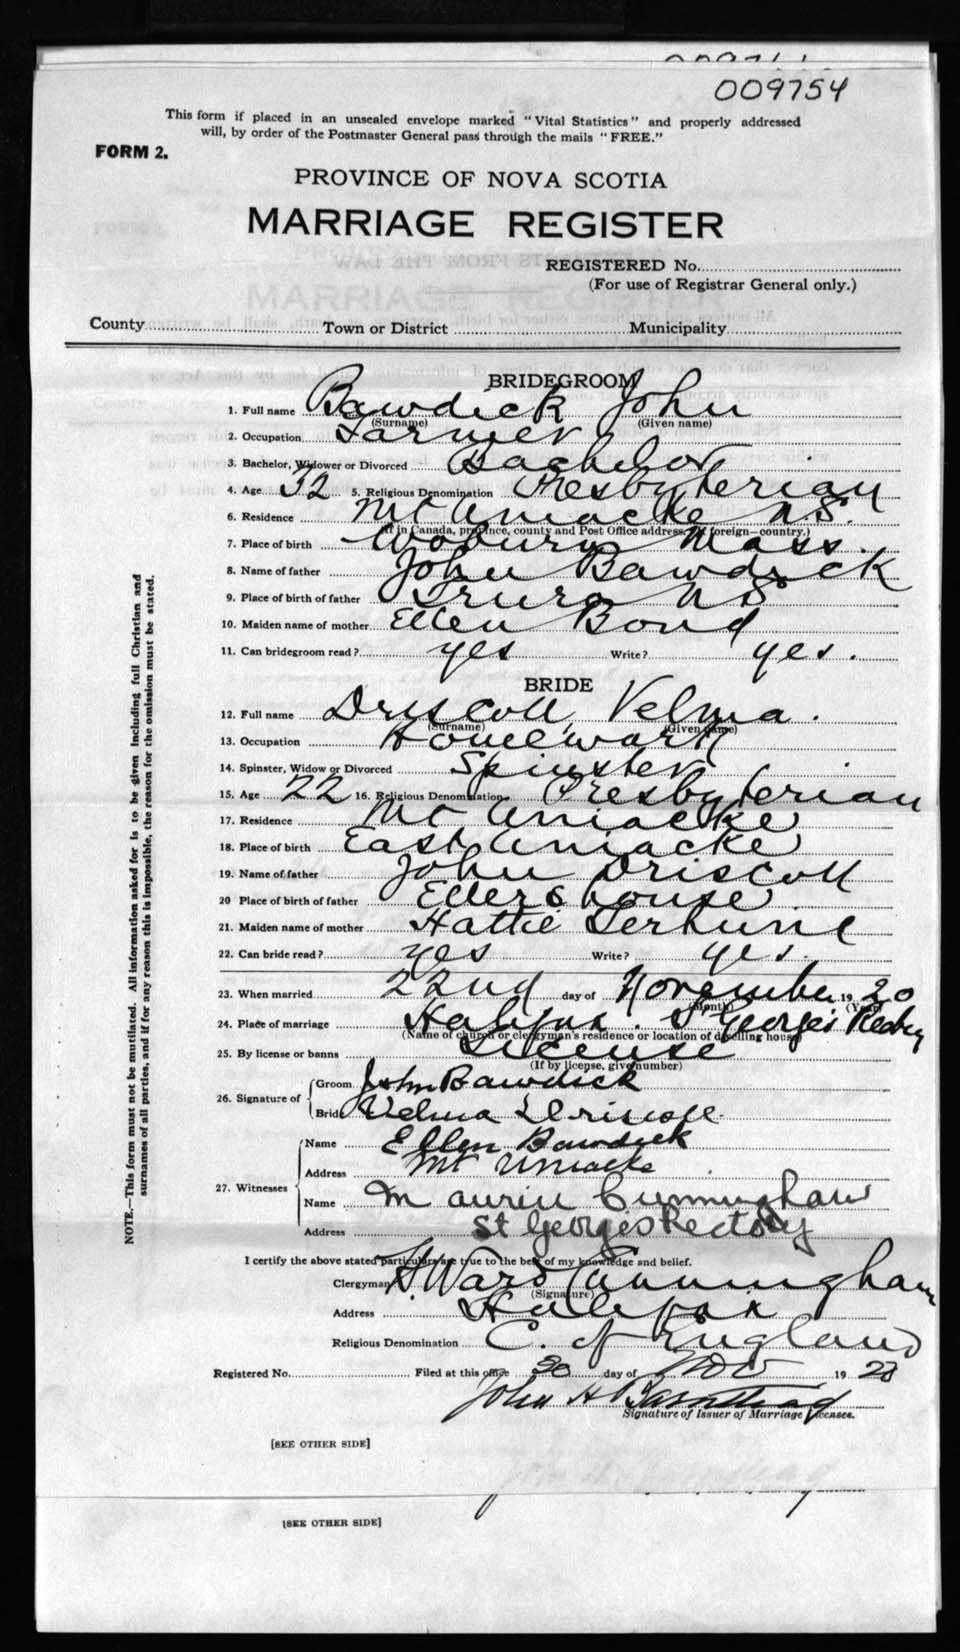 009754
This form if placed in an unsealed envelope marked "Vital Statistics" and properly addressed
will, by order of the Postmaster General pass through the mails "FREE."
FORM 2.
PROVINCE OF NOVA SCOTIA
MARRIAGE REGISTER
REGISTERED No.
(For use of Registrar General only.)
County Town or District Municipality
NOTE.—This form must not be mutilated. All information asked for is to be given including full Christian and
surnames of all parties, and if for any reason this is impossible, the reason for the omission must be stated.
BRIDEGROOM
1. Full name Bawdick John
(Surname) (Given name)
2. Occupation Farmer
3. Bachelor, Widower or Divorced Bachelor
4. Age 32 5. Religious Denomination Presbyterian
6. Residence Mt Uniacke NS.
(If in Canada, province, county and Post Office address, if foreign—country.)
7. Place of birth Woburn Mass.
8. Name of father John Bawdick
9. Place of birth of father Truro NS
10. Maiden name of mother Ellen Bond
11. Can bridegroom read? yes Write? yes.
BRIDE
12. Full name Driscoll, Velma.
(Surname) (Given name)
13. Occupation Housework
14. Spinster, Widow or Divorced Spinster
15. Age 22 16. Religious Denomination Presbyterian
17. Residence Mt Uniacke
18. Place of birth East Uniacke
19. Name of father John Driscoll
20 Place of birth of father Ellershouse
21. Maiden name of mother Hattie Terhune
22. Can bride read? yes Write? yes.
23. When married 22nd day of November 1920
(Month) (Year)
24. Place of marriage Halifax. St Georges Rectory
(Name of church or clergyman's residence or location of dwelling house)
25. By license or banns License
(If by license, give number)
26. Signature of Groom John Bawdick
Bride Velma Driscoll
27. Witnesses Name Ellen Bawdick
Address Mt Uniacke
Name Cunningham
Address St Georges Rectory
I certify the above stated particulars are true to the best of my knowledge and belief.
Clergyman H. Ward Cunningham
(Signature)
Address Halifax
Religious Denomination C. of England
Registered No. Filed at this office 30 day of Nov 19
John H Barnstead
Signature of Issuer of Marriage Licenses.
[SEE OTHER SIDE]
[SEE OTHER SIDE]